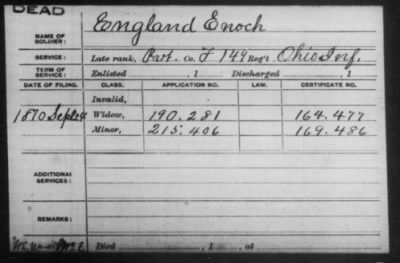 DEAD
NAME OF SOLDIER: England Enoch
SERVICE: Late rank, Co. F 149 Reg't Ohio Inf.
TERM OF SERVICE: Enlisted , 1 Discharged , 1
DATE OF FILING. CLASS. APPLICATION NO. LAW. CERTIFICATE NO.
Invalid,
1870 Sept 14 Widow, 190.281 164.477
Minor, 215.406 169.486
ADDITIONAL SERVICES:
REMARKS:
Died , 1 , at